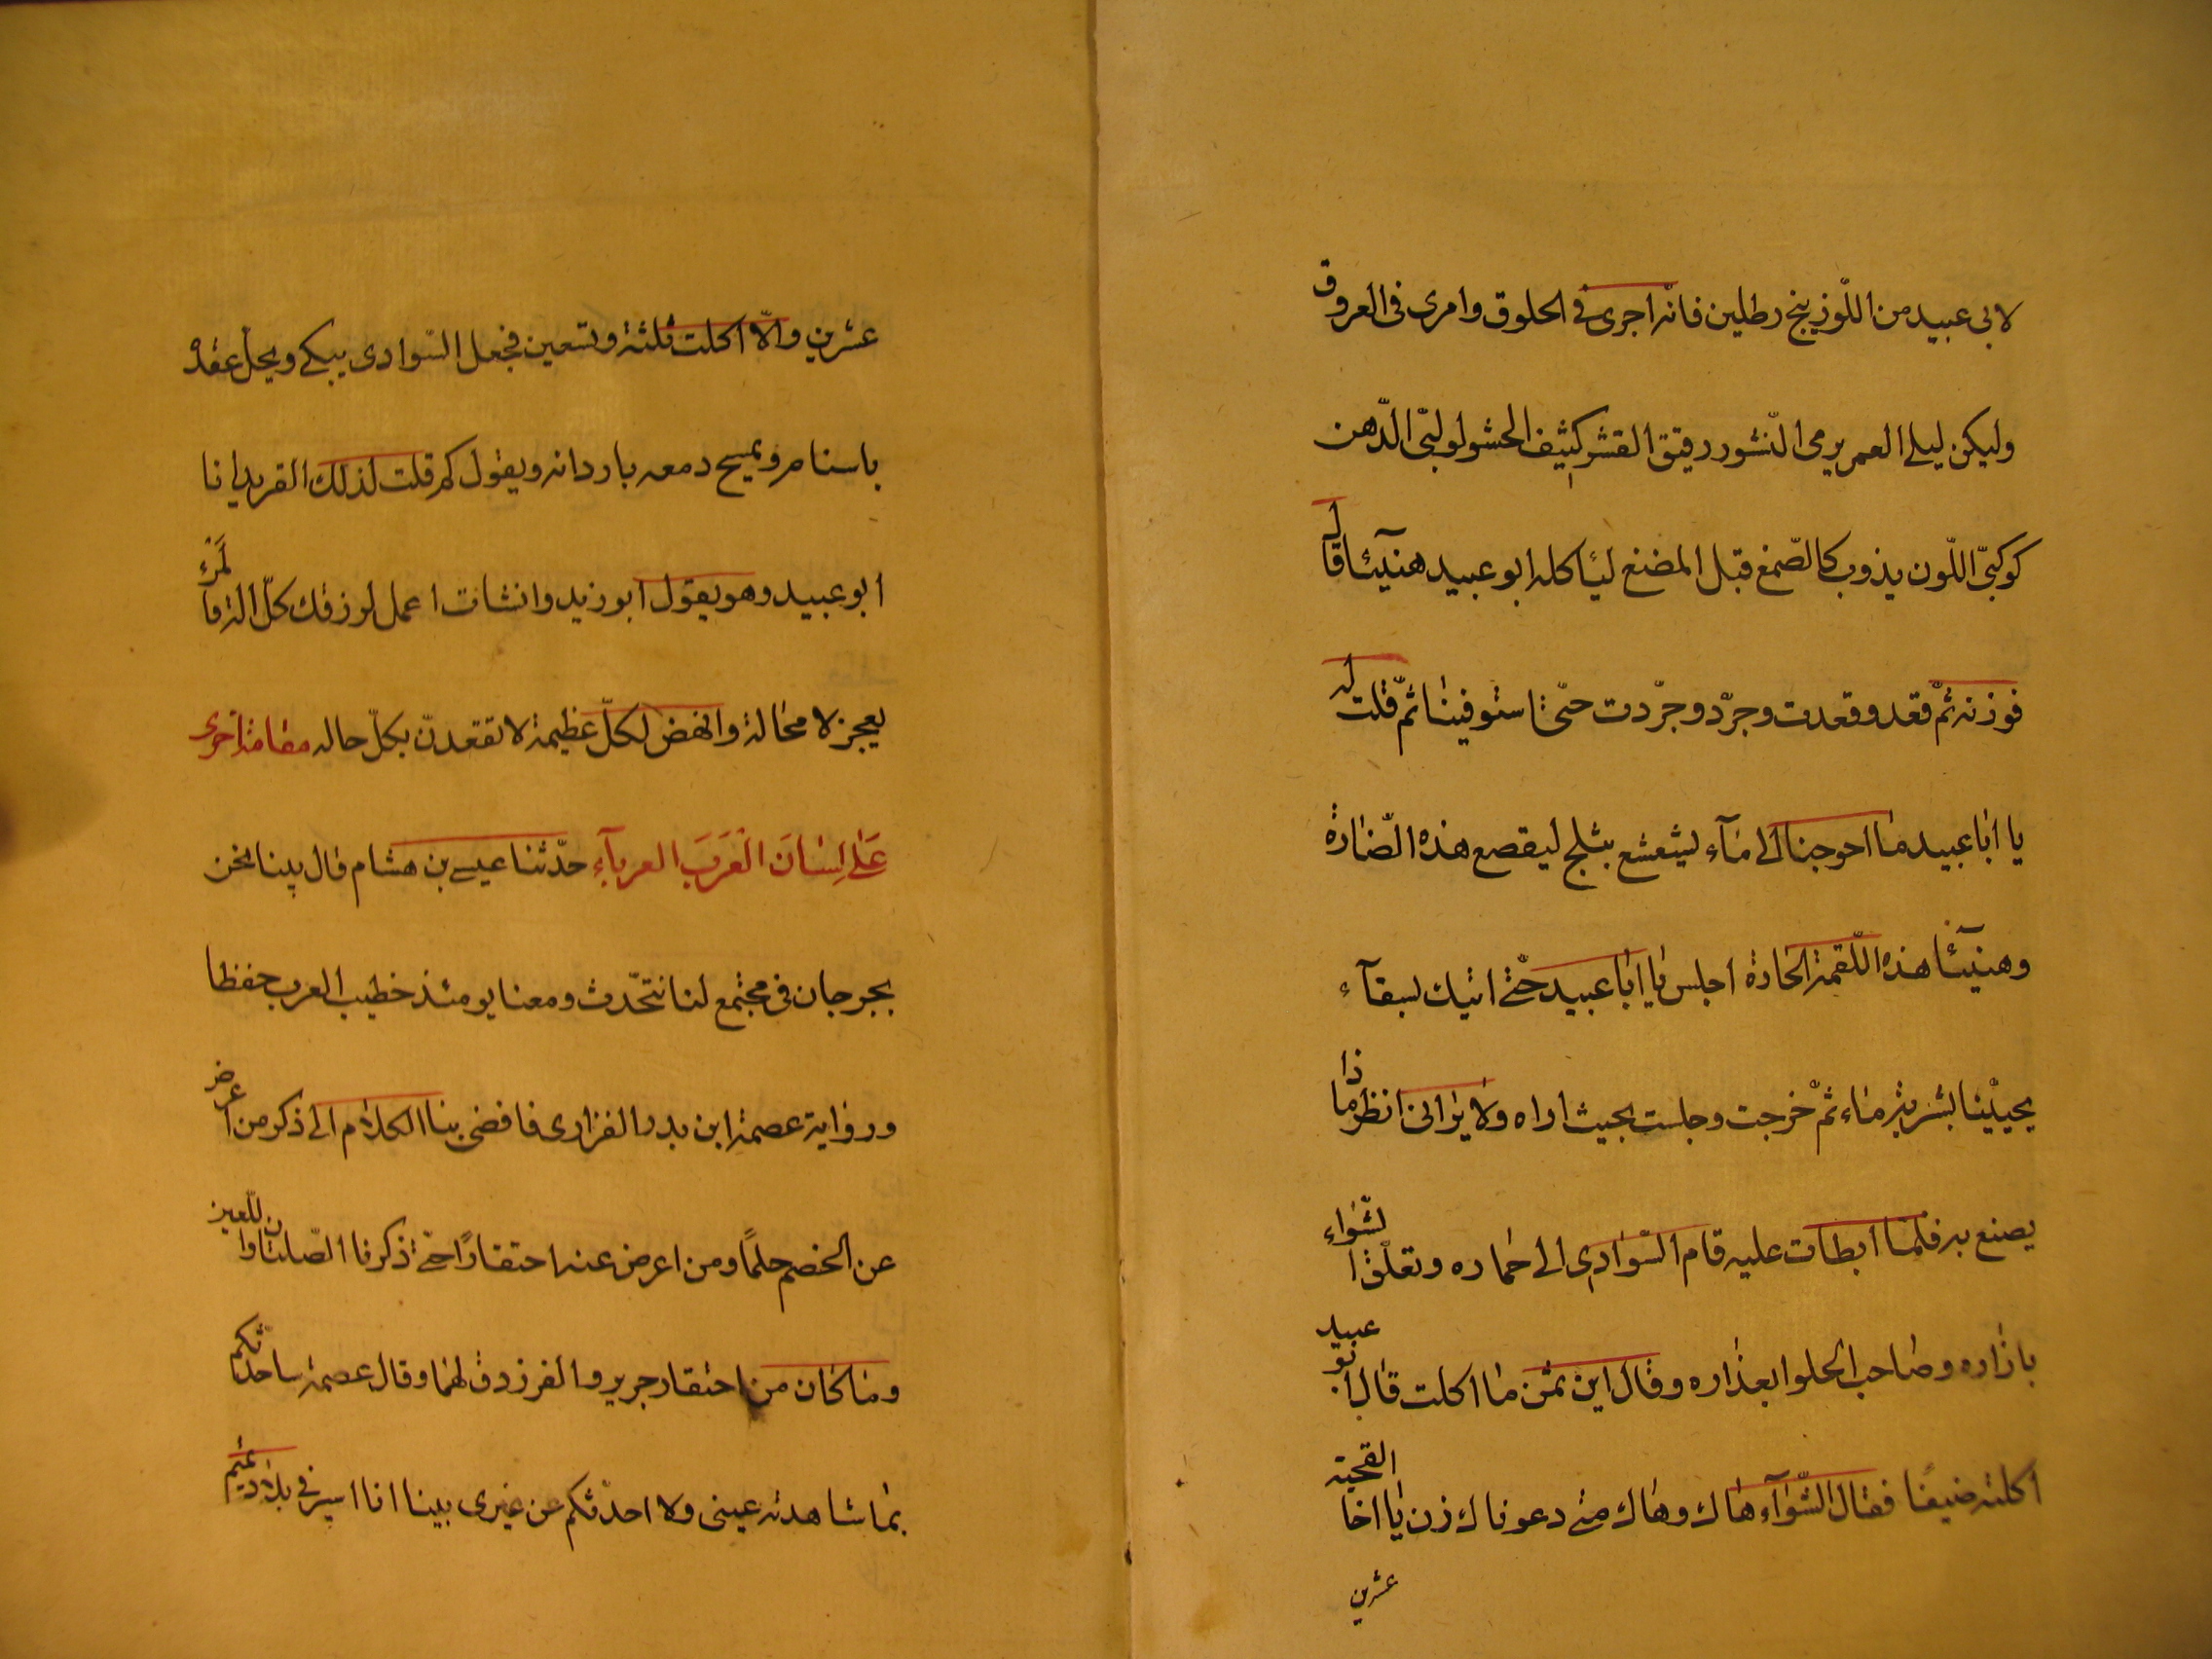 لابى عبيد من اللّوزينج رطلين فانه اجرى فى الحلوق وامرى فى العروق
وليكن ليلى العمر يومى النّشور رقيق القشر كثيف الحشو لولبّى الدّهن
كوكبّى اللّون يذوب كالصّمغ قبل المضغ لياكله ابو عبيد هنيئا قال
فوزنه ثمّ قعد وقعدت وجرّد وجرّدت حتّى استوفينا ثمّ قلت له
يا ابا عبيد ما احوجنا الى مآء ليشعشع بثلج ليقصع هذه الصّارة
وهنيئا هذه اللّقمة الحارة اجلس يا ابا عبيد حتّى اتيك بسقآء
يحيينا بشربة مآء ثمّ خرجت وجلست بحيث اراه ولا يرانى انظر ما ذا
يصنع به فلمّا ابطات عليه قام السّوادى الى حماره وتعلّق الشّواء
بازاره وصاحب الحلوا بعذاره وقال اين ثمن ما اكلت قال ابو عبيد
اكلته ضيفا فقال الشّوآء هاك وهاك متى دعوناك زن يا اخا القحبة
عشرين
عشرين والّا اكلت ثلثة وتسعين فجعل السّوادى يبكى ويحل عقده
باسنانه ويمسح دمعه باردانه ويقول كم قلت لذلك القريد انا
ابو عبيد وهو يقول ابو زيد وانشات اعمل لرزقك كلّ الة فالمرء
يعجز لا محالة وانهض لكلّ عظيمة لا تقعدنّ بكلّ حاله مقامة اخرى
عَلى لِسَانَ العَرَبَ العربآءِ حدّثنا عيسى بن هشام قال بينا نحن
بجرجان فى مجتمع لنا نتحّدث ومعنا يومئذ خطيب العرب حفظا
ورواية عصمة ابن بدر الفزارى فافضى بنا الكلام الى ذكر من اعرض
عن الخصم حلمًا ومن اعرض عنه احتقارًا حتّى ذكرنا الصّلتان واللّعين
وما كان من احتقار جرير والفرزدق لهما وقال عصمة ساحدّثكم
بما شاهدته عينى ولا احدّثكم عن غيرى بينا انا اسير فى بلاد تميم